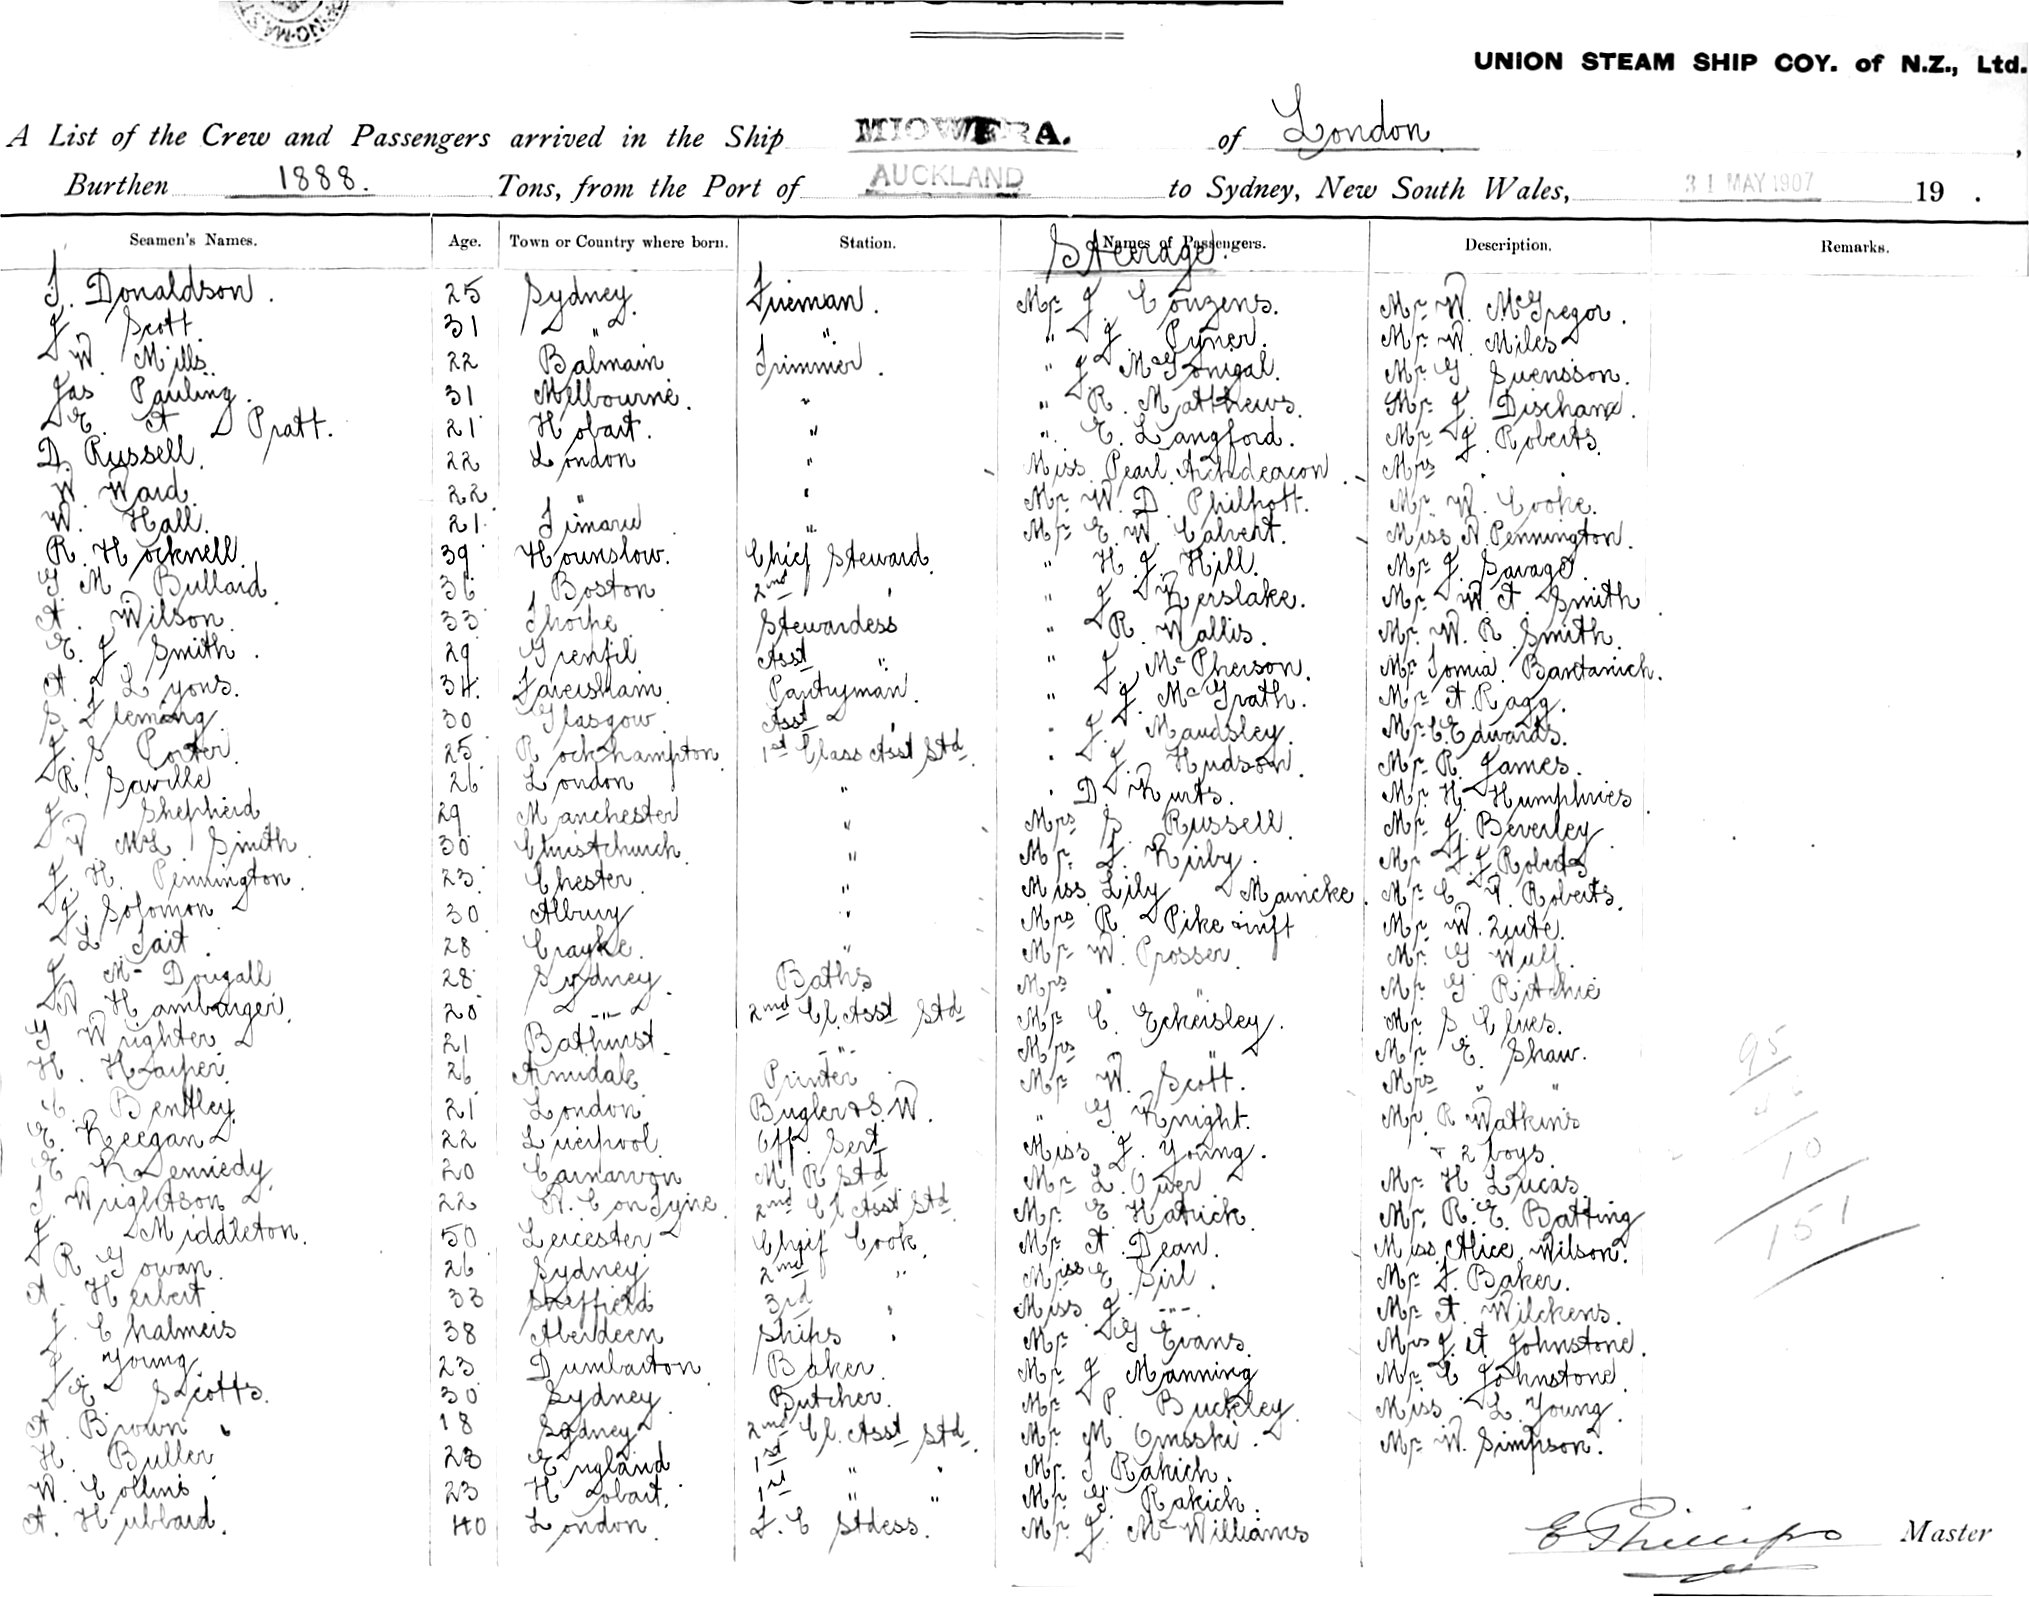 UNION STEAM SHIP COY. of N.Z., Ltd.
A List of the Crew and Passengers arrived in the Ship MIOWERA. of London,
Burthen 1888. Tons, from the Port of AUCKLAND to Sydney, New South Wales, 31 MAY 1907 19 .
Seamen's Names. Age. Town or Country where born. Station. Names of Passengers. Description. Remarks.
Steerage.
J. Donaldson. 25 Sydney. Fireman. Mr J Couzens. Mr W. McGregor.
J Scott. 31 " " " J. Pyner. Mr W Miles
W. Mills. 22 Balmain Trimmer. " J McGonigal. Mr G Suensson.
Jas Pauling. 31 Melbourne. " " R. Matthews. Mr J.
E. A Pratt. 21 Hobart. " " E. Langford. Mr J Roberts.
D. Russell. 22 London " Miss Pearl Archdeacon. Mrs " "
W. Ward. 22 " " Mr W. D. Philpott. Mr W. Cooke.
W. Hall. 21 Timaru " Mr E. W. Calvert. Miss N Pennington.
R. Hocknell. 39 Hounslow. Chief Steward. " H. J. Hill. Mr J. Savage.
G. M. Bullard. 36 Boston 2nd " " J Kerslake. Mr W. A. Smith.
A. Wilson. 33 Thorpe Stewardess " R. Wallis. Mr W. R. Smith.
E. J Smith. 29 Grenfil Asst " " J. McPherson. Mr Tomia Bantanich.
A. Lyons. 34. Faversham. Pantryman. " J. McGrath. Mr A. Ragg.
S. Fleming. 30 Glasgow Asst " " J. Maudsley. Mr C. Edwards.
J. S Porter. 25. Rockhampton. 1st Class Asst Std. " J. Hudson. Mr R. James.
R. Saville 26 London " " D. Kurts. Mr H. Humphries.
J Shepherd 29 Manchester " Mrs S Russell. Mr J. Beverley
W McL Smith. 30 Christchurch. " Mr J. Kirby. Mr J. J Roberts
J. H. Pennington. 23. Chester. " Miss Lily Maincke. Mr C. Roberts.
J. Solomon 30 Albury " Mrs R. Pike & inft Mr W. Zute.
L. Tait. 28 Crayke. " Mr W. Prosser. Mr G Wull.
J McDougall 28 Sydney. Baths Mrs " " Mr G Ritchie
N Hambarger. 20 " 2nd Cl. Asst Std Mr C. Eckersley. Mr S Clues.
G Wrighter 21 Bathurst. " Mrs " Mr E. Shaw.
H. Harper. 26 Armidale Printer Mr W. Scott. Mrs " "
Bentley. 21 London. Bugler & S. W. " G Knight. Mr R Watkins
E. Keegan 22 Liverpool. Off. Sert Miss J. Young. + 2 boys.
E Kennedy. 20 Carnarvon M. R Std Mr L. Ower Mr H Lucas.
J. Wrightson 22 N. C on Tyne. 2nd Cl Asst Std. Mr E. Hatrick. Mr R. E. Batting
J Middleton. 50 Leicester Chief Cook. Mr A. Dean. Miss Alice Wilson.
R Gowan. 26 Sydney 2nd " Miss E Sirl. Mr J. Baker.
A. Herbert. 33 Sheffield 3rd " Miss J " Mr A. Wilckens.
J. Chalmers 38 Aberdeen Ships " Mr G Evans. Mrs J. A Johnstone.
J Young. 23 Dumbarton. Baker. Mr J Manning Mr C Johnstone.
E Scotts. 30 Sydney. Butcher. Mr P. Buckley. Miss L. Young.
A. Brown 18 Sydney 2nd Cl. Asst Std. Mr M. Omsski. Mr W. Simpson.
H. Buller 28 England 1st " " Mr J Rakich.
W. Collins. 23 Hobart. 1st " " Mr G. Rakich.
A. Hubbard. 40 London. F. C Stdess. Mr J. McWilliams
95
10
151
E Phillips Master